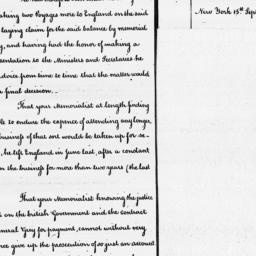 aking two Voyages more to England on the said
laying claim for the said balance by memorial
, and having had the honor of making a
sentation to the Ministers and Secretaries he
from time to time that the matter would
a final decision.
That your Memorialist at length finding
le to endure the expence of attending any longer
business of that sort would be taken up for se-
, he left England in June last, after a constant
n the business for more than two years (the last
That your Memorialist knowing the justice
d on the british Government and the contract
neral Gray for payment, cannot without very
nce give up the prosecution of so just an account
New York 15th Sep